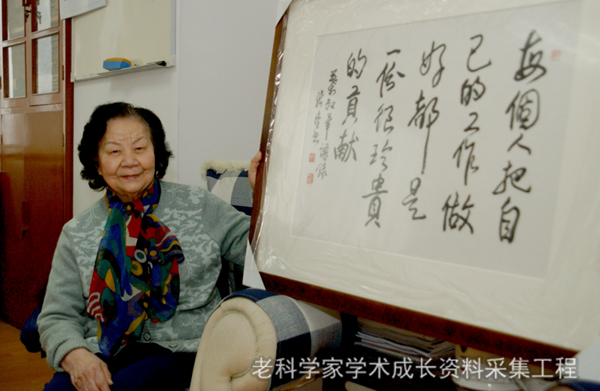 每個人把自
己的工作做
好都是
一份很珍貴
的貢献
老科学家学术成长资料采集工程